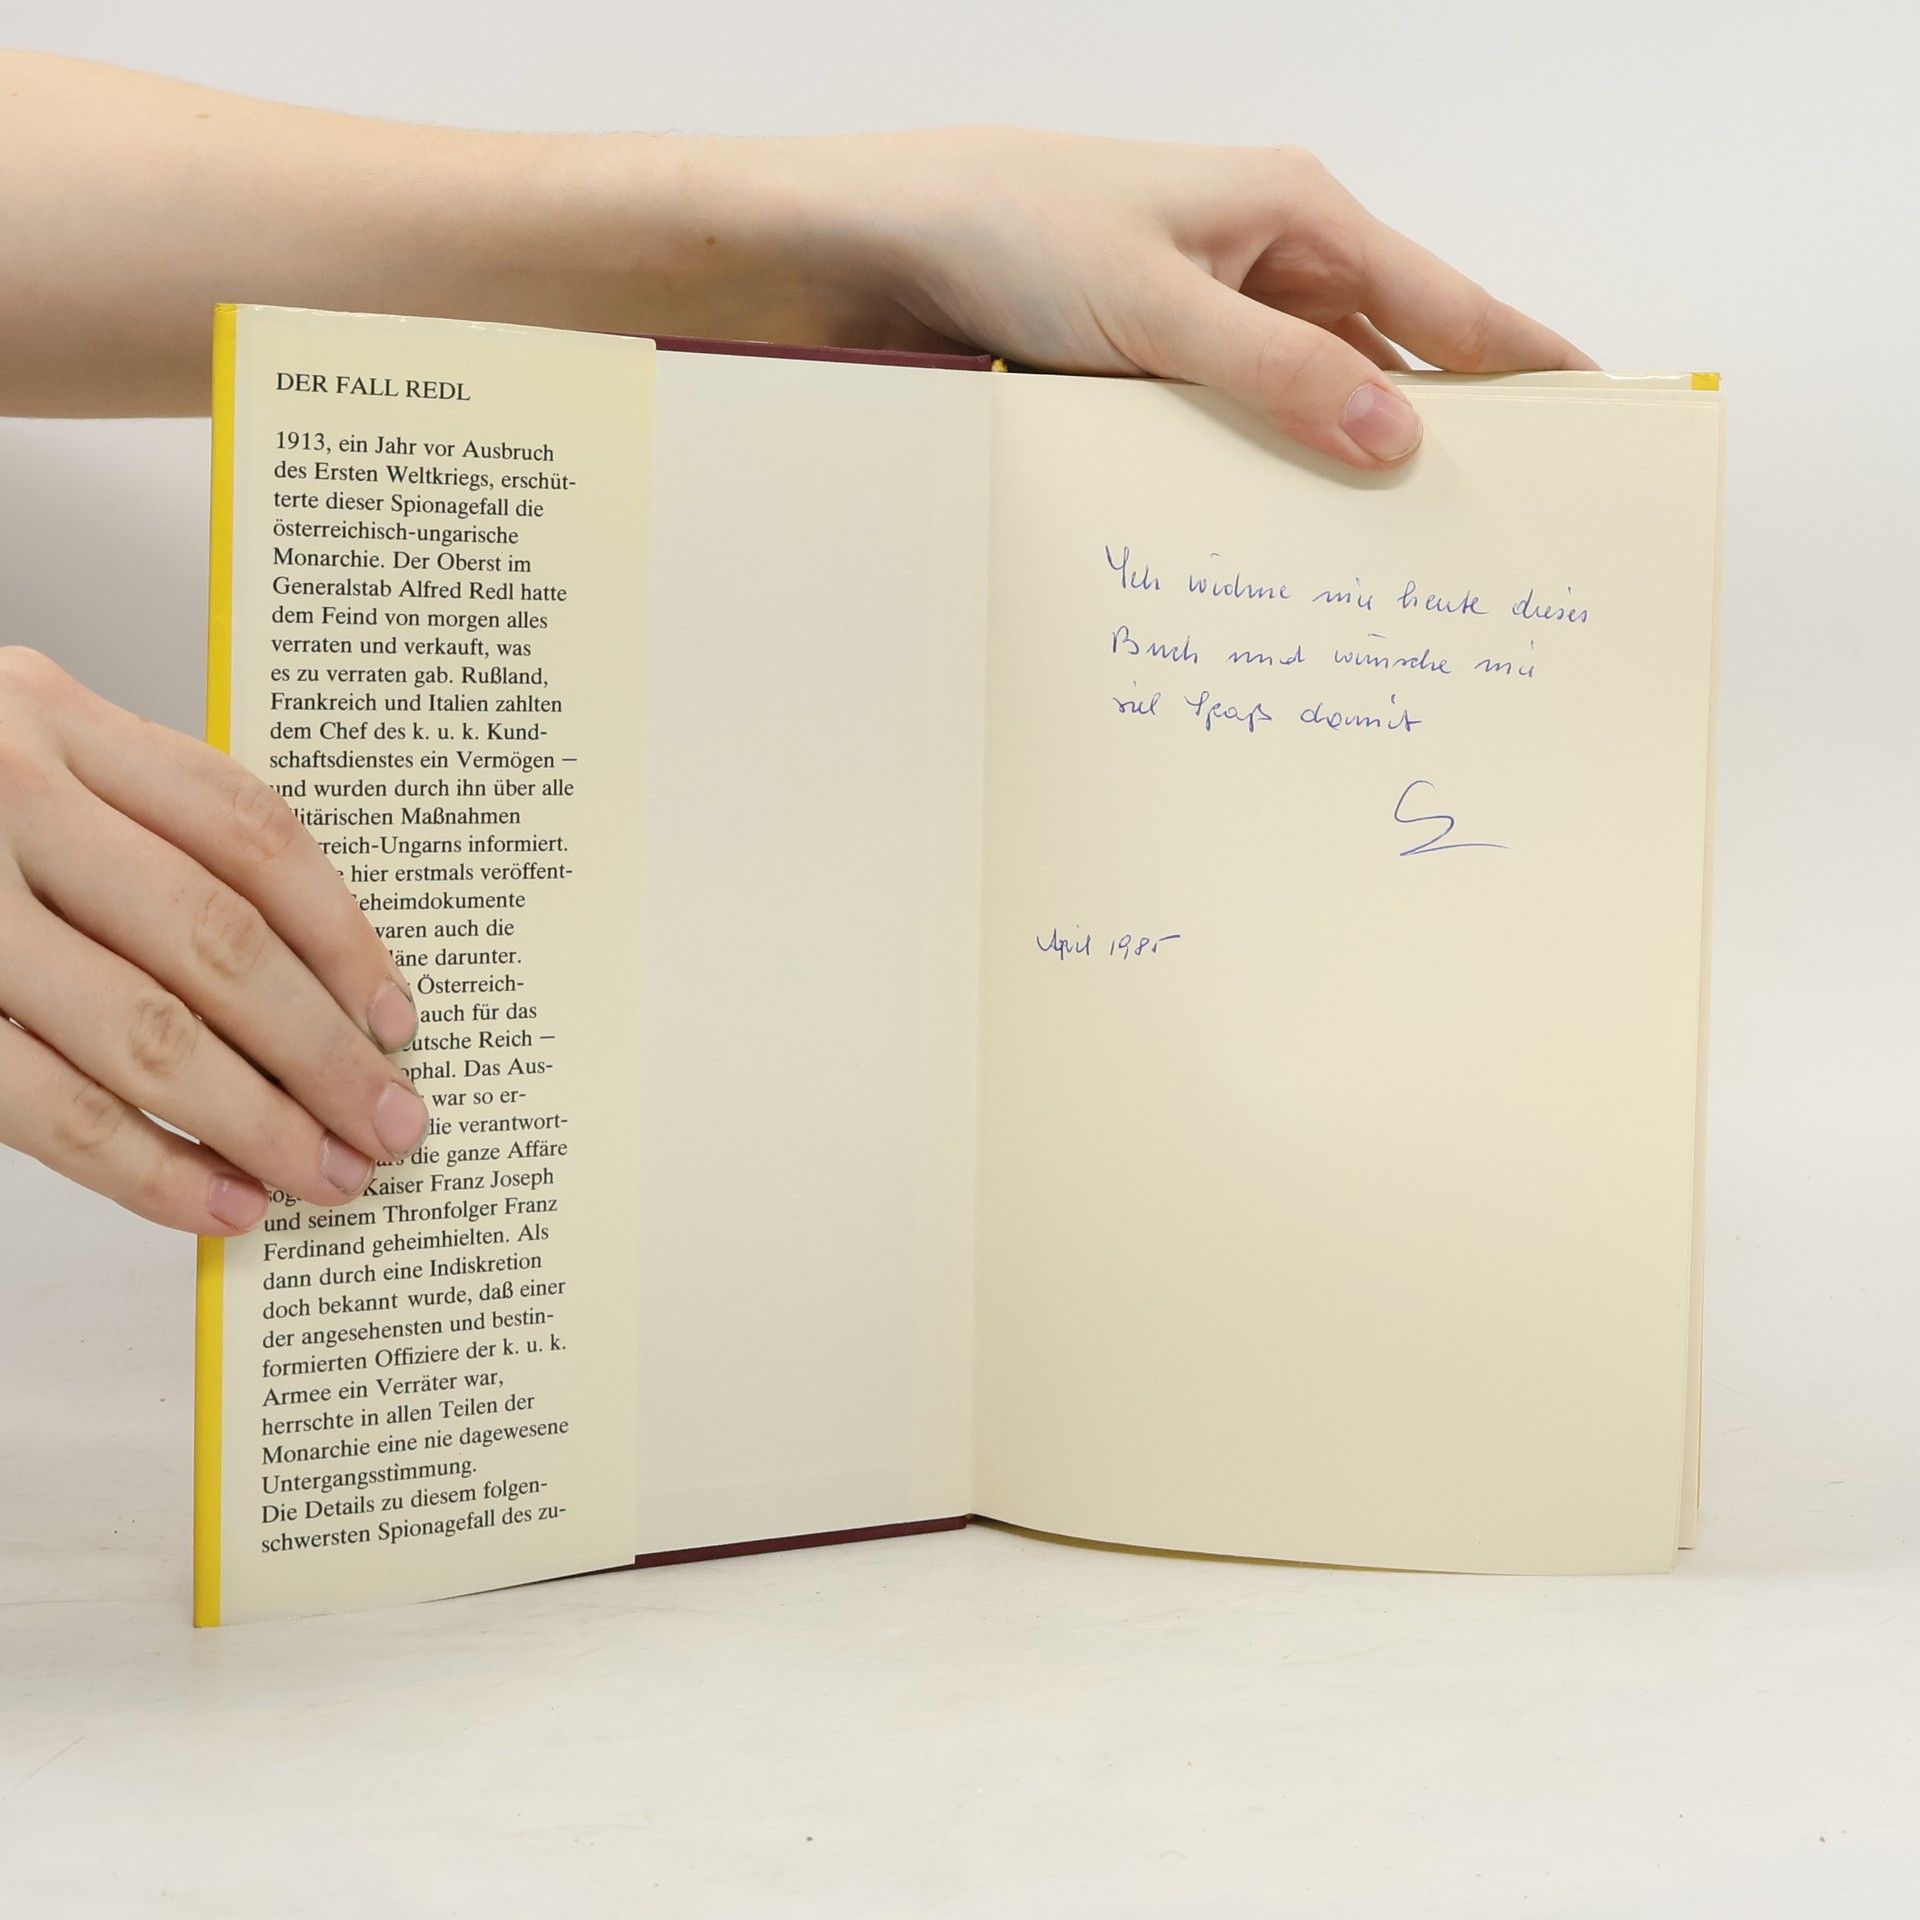 DER FALL REDL
1913, ein Jahr vor Ausbruch
des Ersten Weltkriegs, erschüt-
terte dieser Spionagefall die
österreichisch-ungarische
Monarchie. Der Oberst im
Generalstab Alfred Redl hatte
dem Feind von morgen alles
verraten und verkauft, was
es zu verraten gab. Rußland,
Frankreich und Italien zahlten
dem Chef des k. u. k. Kund-
schaftsdienstes ein Vermögen –
und wurden durch ihn über alle
litärischen Maßnahmen
rreich-Ungarns informiert.
hier erstmals veröffent-
eheimdokumente
waren auch die
läne darunter.
Österreich-
auch für das
eutsche Reich –
ophal. Das Aus-
war so er-
die verantwort-
die ganze Affäre
Kaiser Franz Joseph
und seinem Thronfolger Franz
Ferdinand geheimhielten. Als
dann durch eine Indiskretion
doch bekannt wurde, daß einer
der angesehensten und bestin-
formierten Offiziere der k. u. k.
Armee ein Verräter war,
herrschte in allen Teilen der
Monarchie eine nie dagewesene
Untergangsstimmung.
Die Details zu diesem folgen-
schwersten Spionagefall des zu-
Ich widme mir heute dieses
Buch und wünsche mir
viel Spaß damit
April 1985